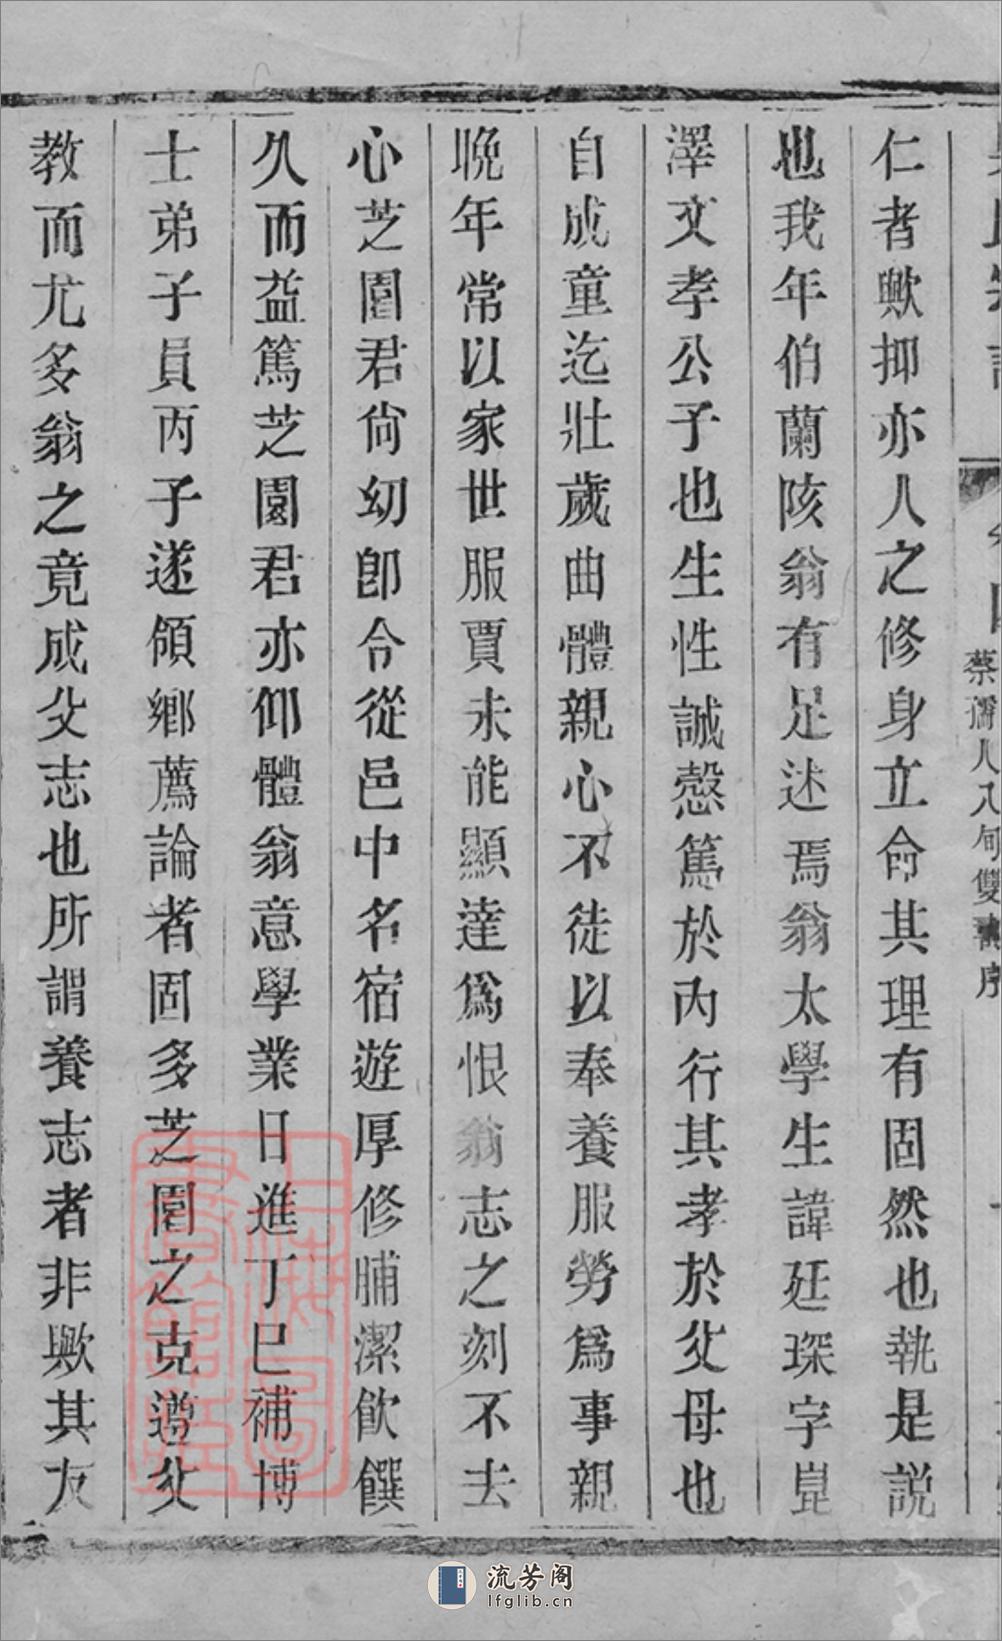 蔡孺人八旬雙壽序
仁者歟抑亦人之修身立命其理有固然也執是説
也我年伯蘭陔翁有足述焉翁太學生諱廷琛字崑
澤文孝公子也生性誠慤篤於內行其孝於父母也
自成童迄壯歲曲體親心不徒以奉養服勞爲事親
晚年常以家世服賈未能顯達爲恨翁志之刻不去
心芝園君尙幼卽令從邑中名宿遊厚修脯潔飲饌
久而益篤芝園君亦仰體翁意學業日進丁巳補博
士弟子員丙子遂領鄉薦論者固多芝園之克遵父
教而尤多翁之竟成父志也所謂養志者非歟其友
上海圖書館藏
流芳阁
lfglib.cn